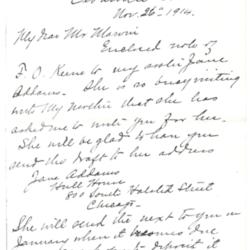 Nov. 26th 1914.
My dear Mr.
Enclosed note of
F. O. Keene to my aunt Jane
Addams. She is so busy writing
with my mother that she has
asked me to write you for her.
She will be glad to have you
send the draft to her address
Jane Addams
Hull House
800 South Halsted Street
Chicago.
She will send the next to you in
January when it becomes due
to deposit it